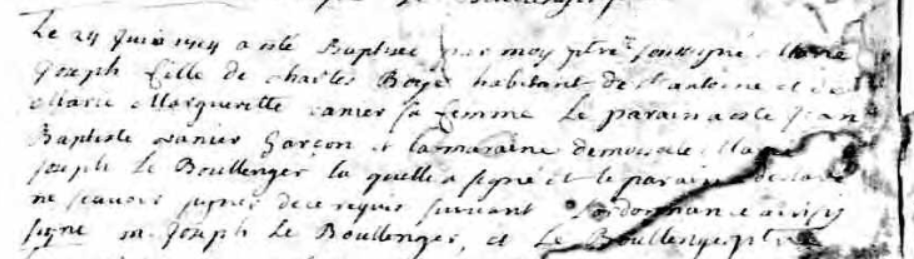 Le 24 Juin 1724 a esté Baptisee par moy ptre soussigné Marie
Joseph fille de charles Boyé habitant de St antoine et de
Marie Margueritte vanier sa femme Le parain a esté Jean
Baptiste vanier Garçon et la maraine demoiselle Marie
Joseph Le Boullenger la quelle a signé et le parain declaré
ne scavoir signer de ce requis suivant L'ordonnance ainsi
signé m. Joseph Le Boullenger, et Le Boullenger ptre